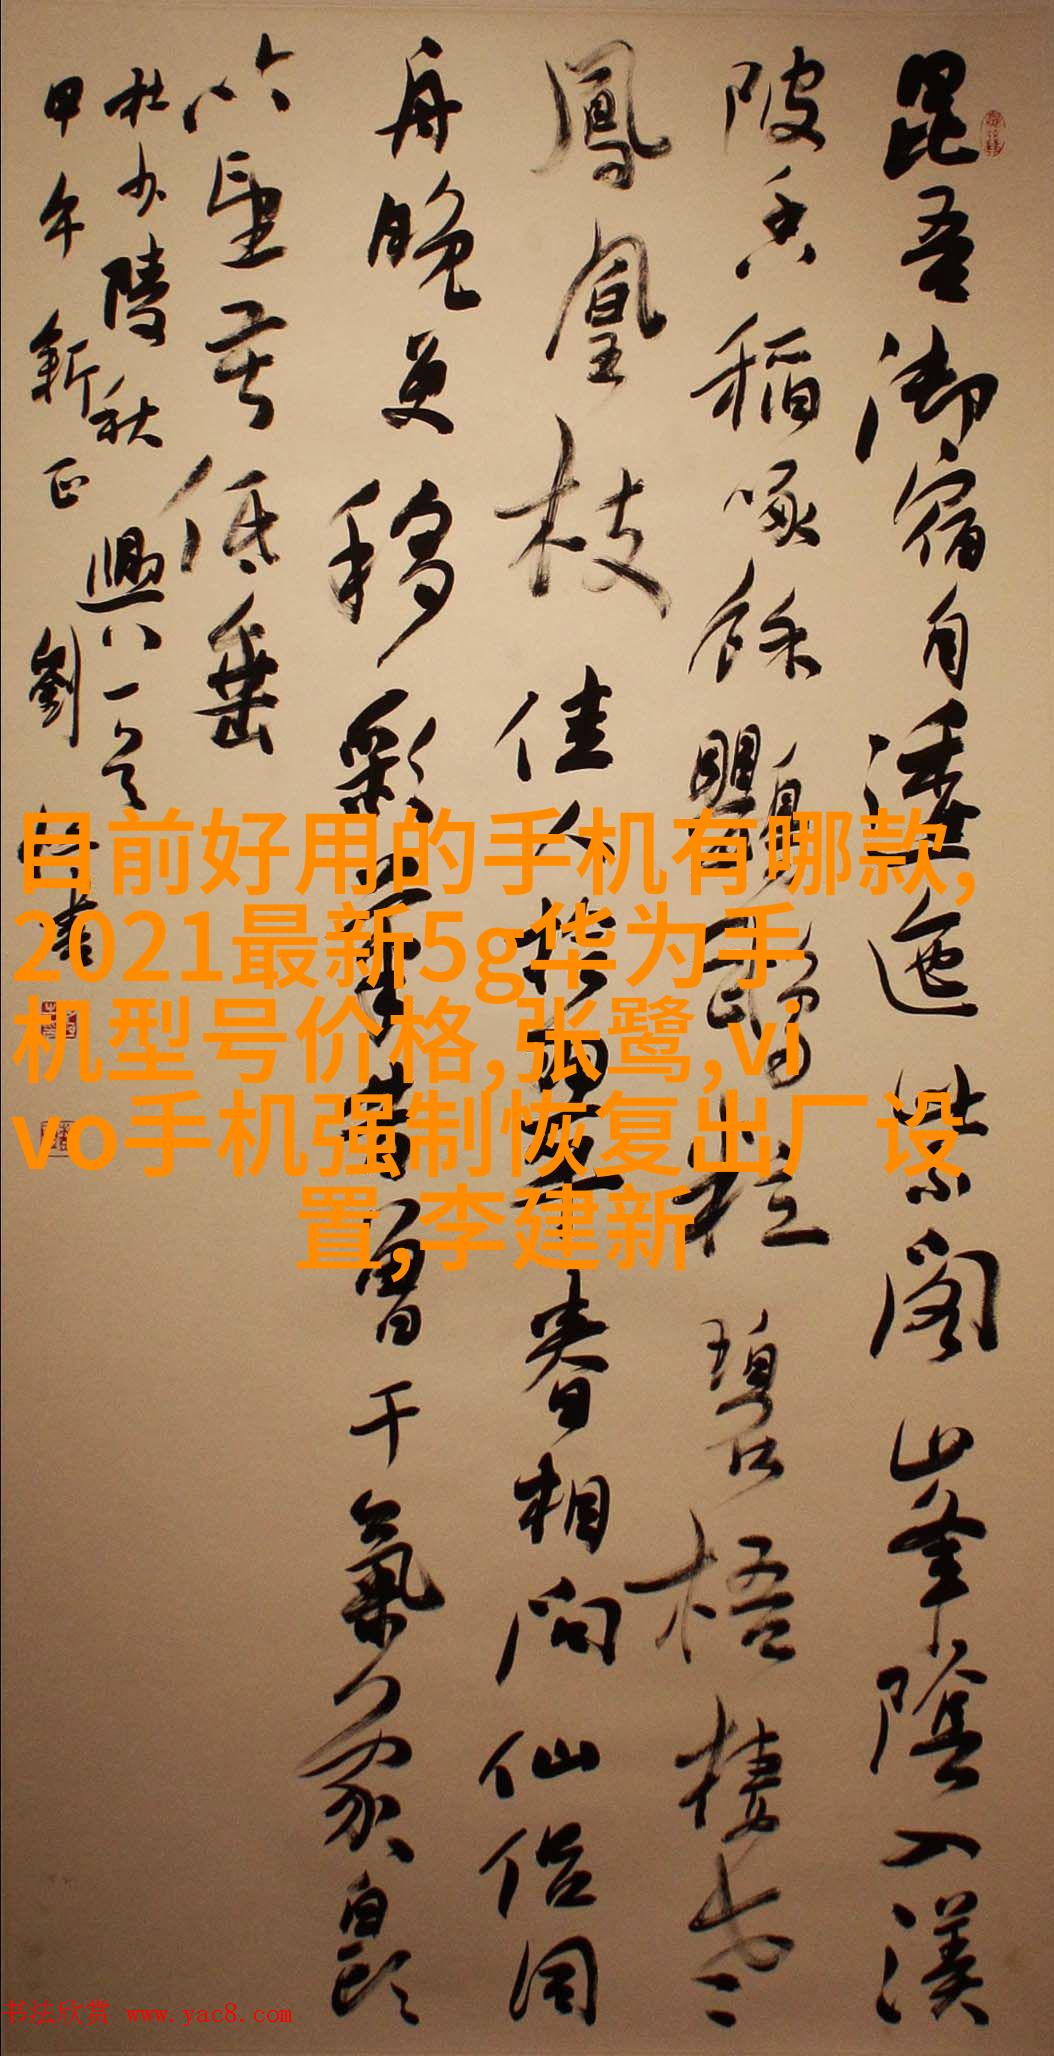 昆吾御宿自逶迤紫閣峯陰入渼
陂香稻啄餘鸚鵡粒碧梧棲老
鳳凰枝佳人拾翠春相問仙侶同
舟晚更移彩筆昔曾干氣象白頭
吟望苦低垂
杜少陵秋興八一首
甲午新正劉書
目前好用的手机有哪款,
2021最新5g华为手
机型号价格,张鹭,vi
vo手机强制恢复出厂设
置,李建新
书法欣赏 www.yac8.com